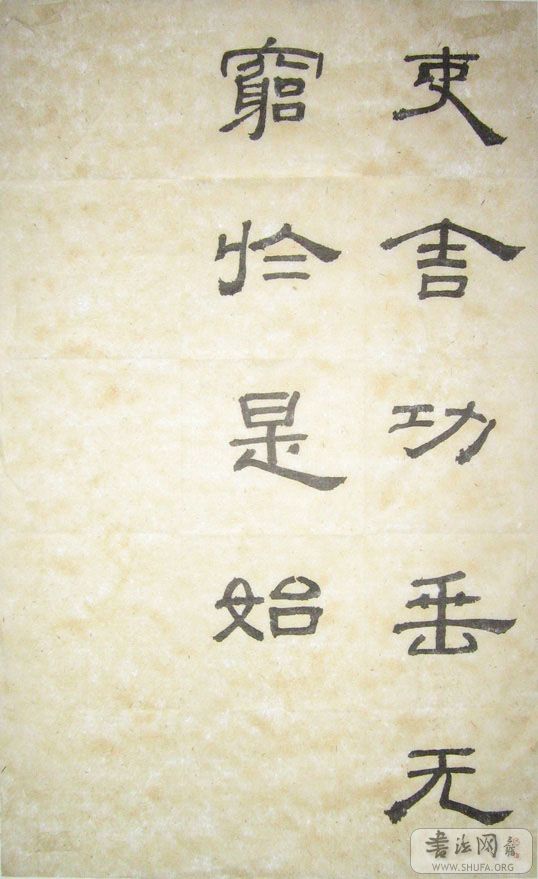 吏舍功垂无
窮於是始
書法网
WWW.SHUFA.ORG